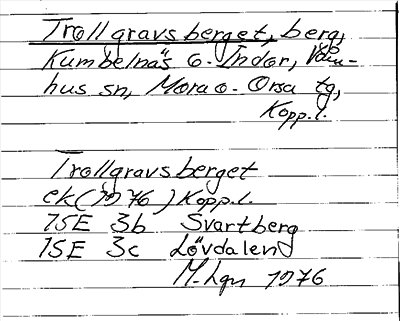 Trollgravsberget, berg,
Kumbelnäs o. Indor, Våm-
hus sn, Mora o. Orsa tg,
Kopp.l.
Trollgravsberget
ek (1976) Kopp.l.
15E 3b Svartberg
15E 3c Lövdalen
M-hgn 1976